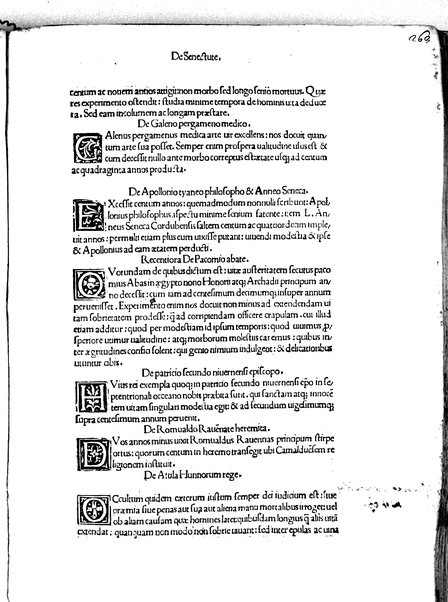 263
De Senectute.
centum ac nouem annos attigit non morbo sed longo senio mortuus. Quæ
res experimento ostendit: studia minime tempora de hominis uita deduce
ra. Sed eam incolumem ac longam præstare.
De Galeno pergameno medico.
GAlenus pergamenus medica arte uir excellens: nos docuit quan
tum arte sua posset. Semper enim prospera ualitudine usus est &
cum decessit nullo ante morbo correptus est ætate usq; ad centum
ac quadraginta annos producta.
De Apollonio tyaneo philosopho & Anneo Seneca.
EXcessit centum annos: quemadmodum nonnulli scribunt: Apol
lonius philosophus aspectu minime senium fatente: item L. An
neus Seneca Cordubensis saltem centum ac quatuordecim imple
uit annos: permulti etiam plus eum uixisse putant: uiuendi modestia & ipse
& Apollonius ad eam ætatem perducti.
Recentiora De Pacomio abate.
QVorundam de quibus dictum est: uitæ austeritatem secutus paco
mius Abas in ægypto nono Honorii atq; Archadii principum an
no decessit: cum iam ad centesimum decimumq; insuper annum
peruenisset. Experimento enim nos docuit non minus ad extendendam ui
tam sobrietatem prodesse: q̃ ad corripiendam officere crapulam. cui illud
etiam additur: quod per modestiam id ipsum temporis: quod uiuimus p̱
speriore utimur ualitudine: atq; morborum molestiis caremus: quibus in
ter ægritudines confici solent: qui genio nimium indulgent: & delicationibus
utuntur cibis.
De patricio secundo niuernensi episcopo.
HVius rei exempla quoq; in patricio secundo niuernensi ep̃o in se
ptentrionali occeano nobis præbita sunt. qui sanctam atq; innocẽ
tem uitam singulari modestia egit: & ad secundum uigesimumq;
supra centesimum annum peruenit.
De Romualdo Rauẽnate heremita.
DVos annos minus uixit Romualdus Rauennas principum stirpe
ortus: quorum centum in heremo transegit ubi Camaldusẽsem re
ligionem instituit.
De Atila Hunnorum rege.
OCcultum quidem cæterum iustum semper dei iudicium est: siue
ob præmia siue penas aut sua aut aliena manu mortalibus irroget: uel
ob aliam causam quæ homines latet: quibusdam longius q̃ aliis uitã
extendat: quanquam non modo non sobrie uiuant: sed inter epulas ac uina